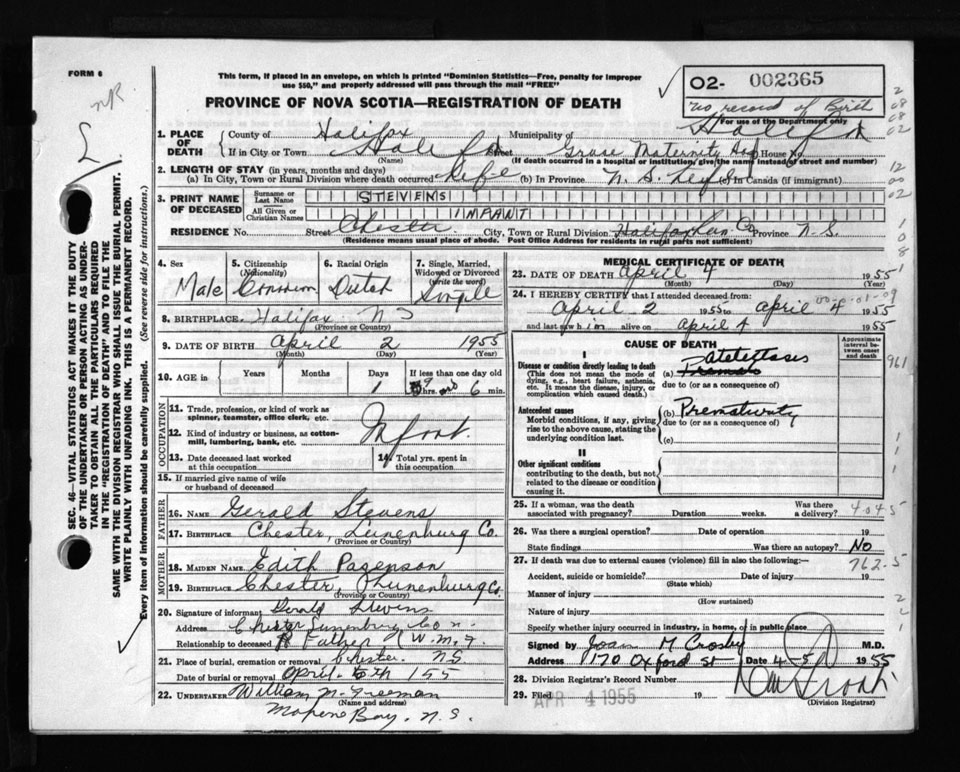 FORM 6
This form, if placed in an envelope, on which is printed "Dominion Statistics—Free, penalty for improper
use $50," and properly addressed will pass through the mail "FREE"
PROVINCE OF NOVA SCOTIA—REGISTRATION OF DEATH
02- 002365
no record of Birth
For use of the Department only
NR
SEC. 46—VITAL STATISTICS ACT MAKES IT THE DUTY
OF THE UNDERTAKER OR PERSON ACTING AS UNDER-
TAKER TO OBTAIN ALL THE PARTICULARS REQUIRED
IN THE "REGISTRATION OF DEATH" AND TO FILE THE
SAME WITH THE DIVISION REGISTRAR WHO SHALL ISSUE THE BURIAL PERMIT.
WRITE PLAINLY WITH UNFADING INK. THIS IS A PERMANENT RECORD.
Every item of information should be carefully supplied. (See reverse side for instructions.)
1. PLACE OF DEATH
County of Halifax Municipality of Halifax
If in City or Town Halifax Street Grace Maternity Hos House No.
(Name) (If death occurred in a hospital or institution, give the name instead of street and number)
2. LENGTH OF STAY (in years, months and days)
(a) In City, Town or Rural Division where death occurred Life (b) In Province N. S. Life (c) In Canada (if immigrant)
3. PRINT NAME OF DECEASED
Surname or Last Name STEVENS
All Given or Christian Names INFANT
RESIDENCE No. Street Chester City, Town or Rural Division Halifax Lun. Co Province N.S.
(Residence means usual place of abode. Post Office Address for residents in rural parts not sufficient)
4. Sex Male
5. Citizenship (Nationality) Canadian
6. Racial Origin Dutch
7. Single, Married, Widowed or Divorced (write the word) Single
8. BIRTHPLACE Halifax N S
(Province or Country)
9. DATE OF BIRTH April 2 1955
(Month) (Day) (Year)
10. AGE Years Months Days 1 If less than one day old 9 hrs. and 6 min.
OCCUPATION
11. Trade, profession, or kind of work as spinner, teamster, office clerk, etc.
12. Kind of industry or business, as cotton-mill, lumbering, bank, etc. Infant.
13. Date deceased last worked at this occupation
14. Total yrs. spent in this occupation
15. If married give name of wife or husband of deceased
FATHER
16. NAME Gerald Stevens
17. BIRTHPLACE Chester, Lunenburg Co.
(Province or Country)
MOTHER
18. MAIDEN NAME Edith
19. BIRTHPLACE Chester, Lunenburg Co.
(Province or Country)
20. Signature of informant Gerald Stevens
Address Chester Lunenburg Co N.
Relationship to deceased Father (W.M.F.
21. Place of burial, cremation or removal Chester. N.S.
Date of burial or removal April. 5th 155
22. UNDERTAKER William N. Freeman
(Name and address)
Bay. N.S.
MEDICAL CERTIFICATE OF DEATH
23. DATE OF DEATH April 4 1955
(Month) (Day)
24. I HEREBY CERTIFY that I attended deceased from:
April 2 1955 to April 4 1955
and last saw him alive on April 4 1955
CAUSE OF DEATH
Approximate interval between onset and death
I
Disease or condition directly leading to death
(This does not mean the mode of dying, e.g., heart failure, asthenia, etc. It means the disease, injury, or complication which caused death.)
(a) Atelectases
due to (or as a consequence of)
Antecedent causes
Morbid conditions, if any, giving rise to the above cause, stating the underlying condition last.
(b) Prematurity
due to (or as a consequence of)
(c)
II
Other significant conditions
contributing to the death, but not related to the disease or condition causing it.
25. If a woman, was the death associated with pregnancy? Duration weeks. Was there a delivery?
4045
26. Was there a surgical operation? Date of operation 19
State findings Was there an autopsy? No
27. If death was due to external causes (violence) fill in also the following:—
762.5
Accident, suicide or homicide? Date of injury 19
(State which)
Manner of injury
(How sustained)
Nature of injury
Specify whether injury occurred in industry, in home, or in public place
Signed by Joan M Crosby M.D.
Address 170 Oxford St Date 4-5 1955
28. Division Registrar's Record Number
29. Filed APR 4 1955 19
(Division Registrar)
961
2
08
08
02
12
00
02
1
0
8